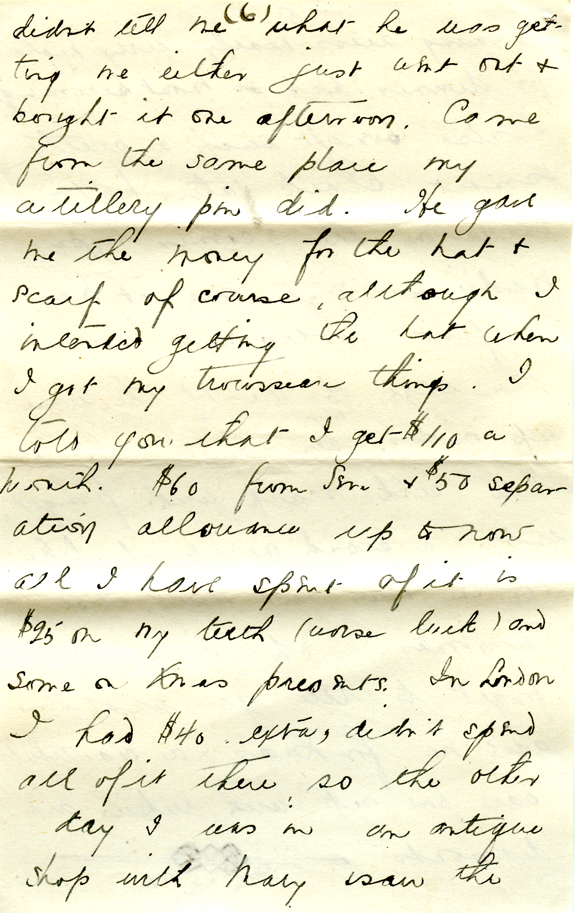 (6)
didnt tell me what he was get-
ting me either just went out &
bought it one afternoon. Came
from the same place my
artillery pin did. He gave
me the money for the hat &
scarf of course, although I
intended getting the hat when
I got my trousseau things. I
told you that I get $110 a
month. $60 from Jim & $50 separ
ation allowance up to now
all I have spent of it is
$25 on my teeth (worse luck) and
some on Xmas presents. In London
I had $40 extra, didn't spend
all of it there, so the other
day I was in an antique
shop with Mary & saw the